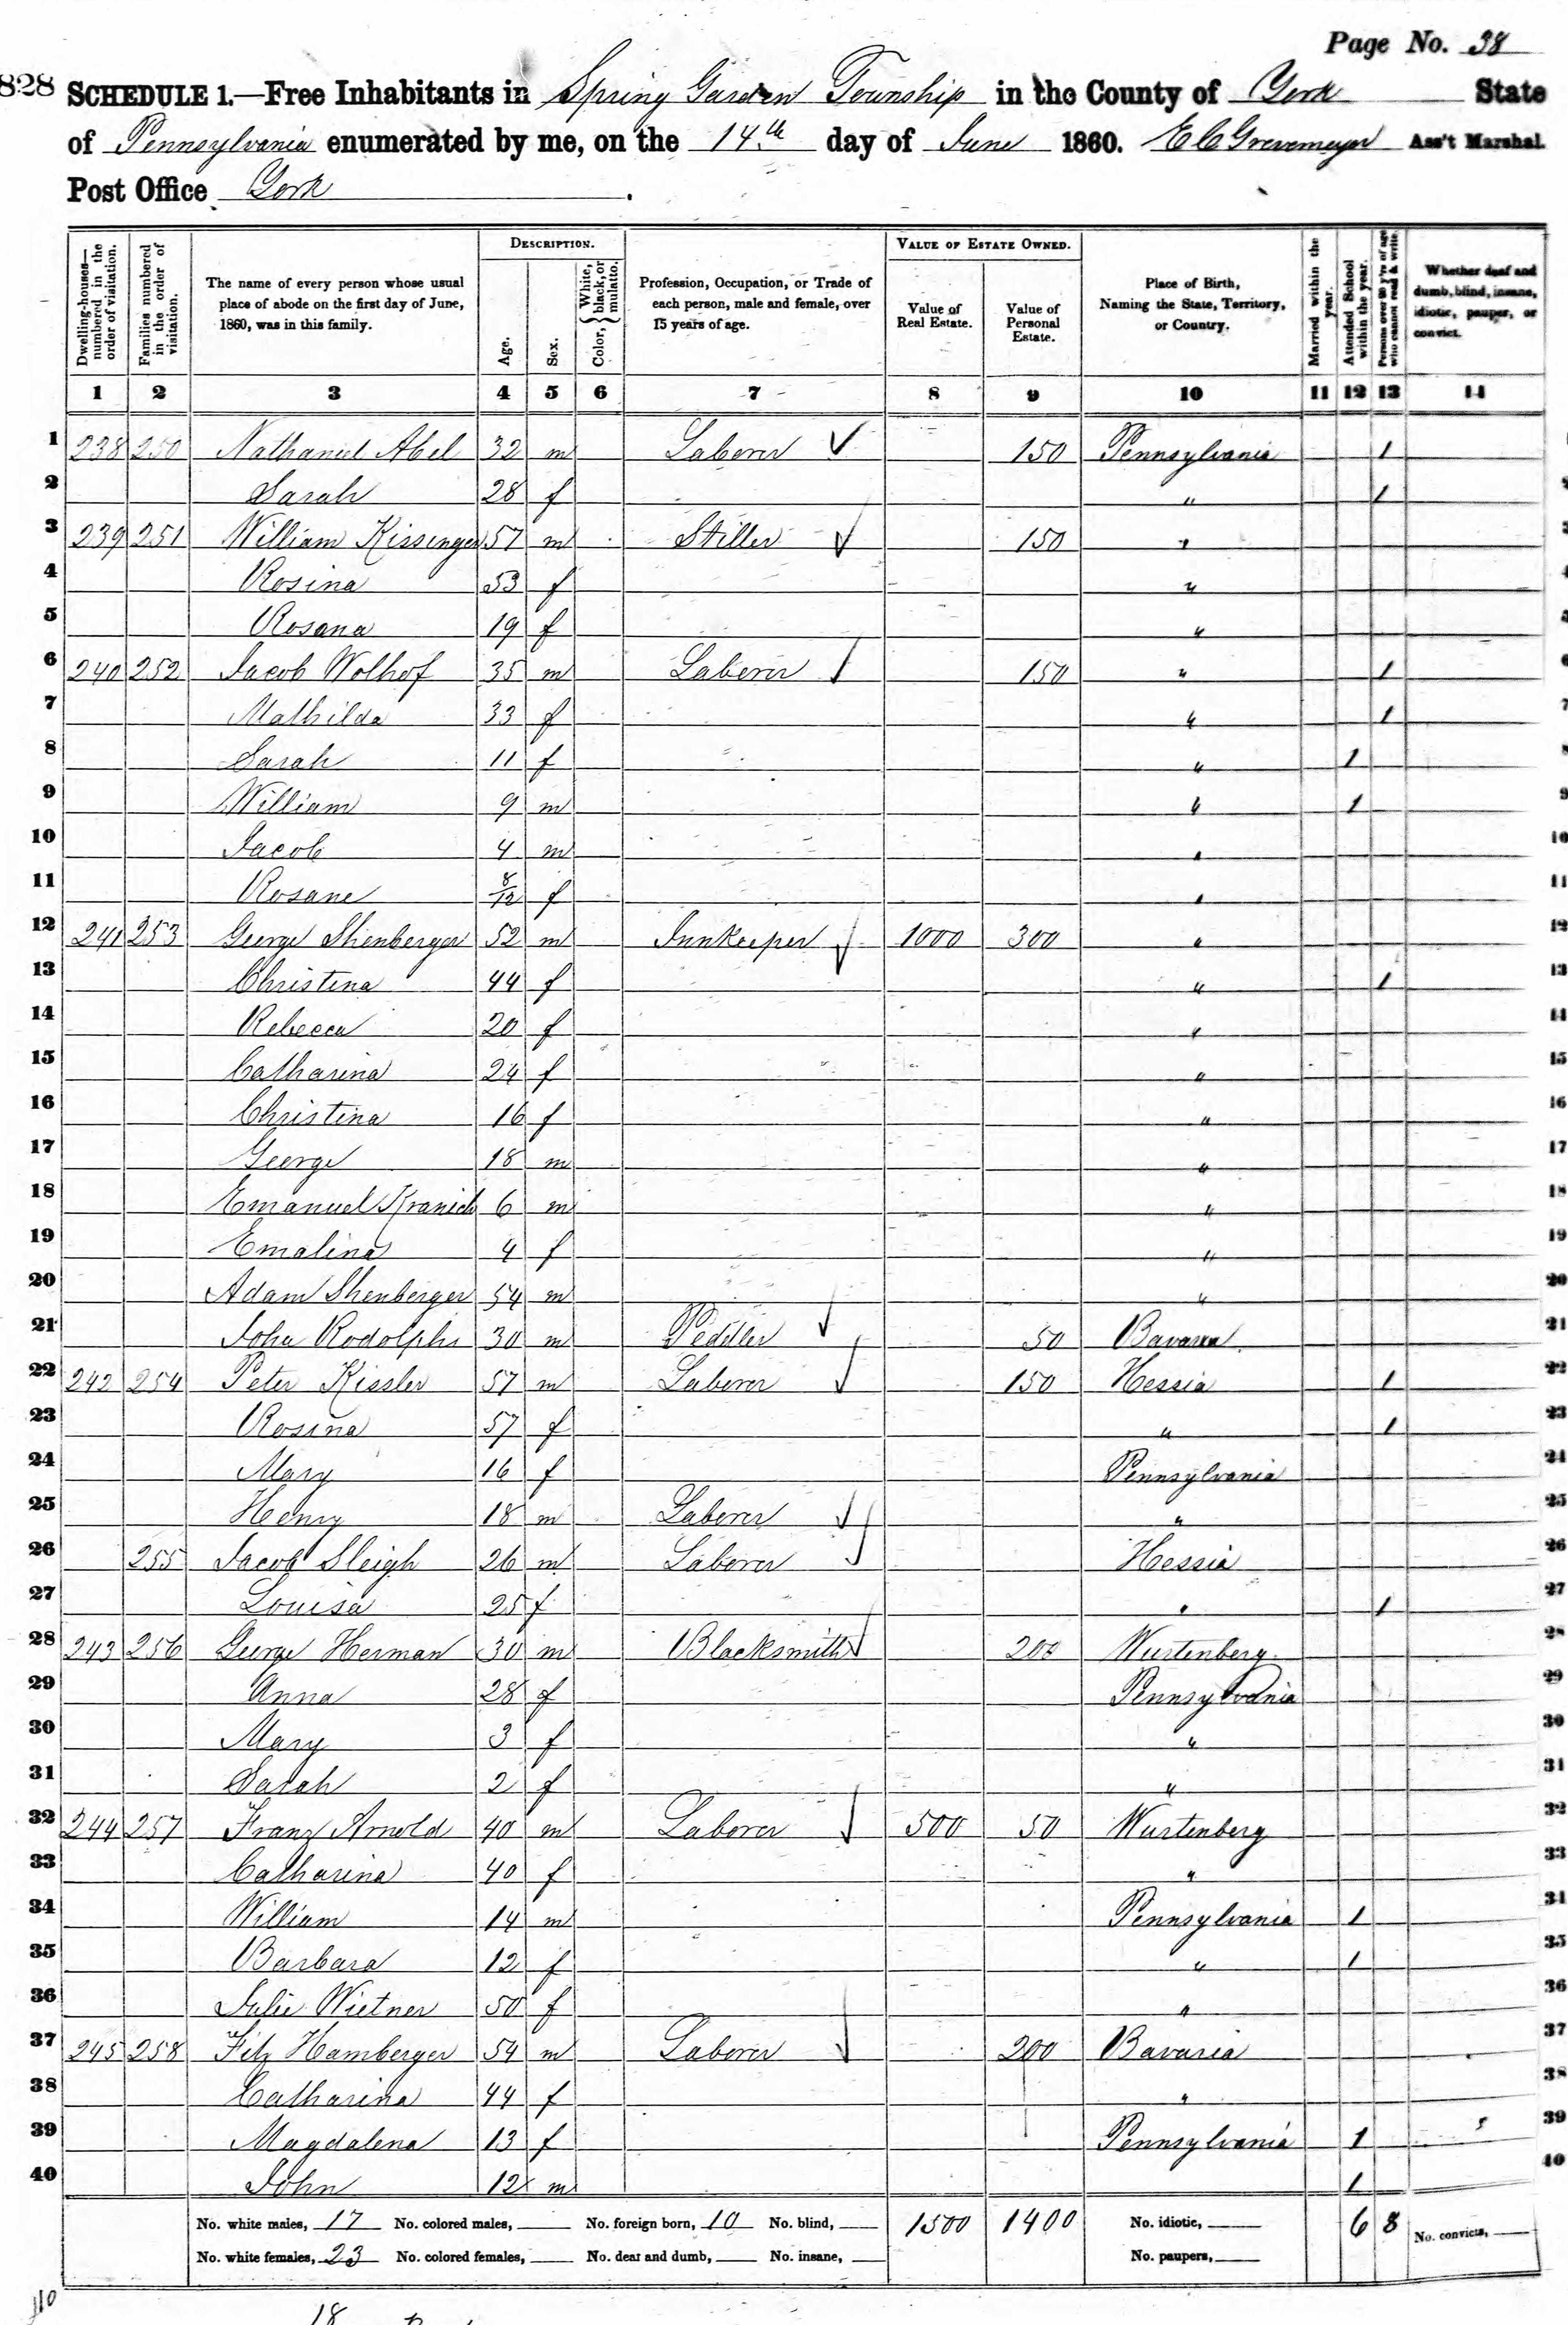 Page No. 38
828 SCHEDULE 1.—Free Inhabitants in Spring Garden Township in the County of York State
of Pennsylvania enumerated by me, on the 14th day of June 1860. E C Grevemeyer Ass't Marshal.
Post Office York.
Dwelling-houses—numbered in the order of visitation. Families numbered in the order of visitation. The name of every person whose usual place of abode on the first day of June, 1860, was in this family. DESCRIPTION. Age. Sex. Color, { White, black, or mulatto. Profession, Occupation, or Trade of each person, male and female, over 15 years of age. VALUE OF ESTATE OWNED. Value of Real Estate. Value of Personal Estate. Place of Birth, Naming the State, Territory, or Country. Married within the year. Attended School within the year. Persons over 20 y'rs of age who cannot read & write. Whether deaf and dumb, blind, insane, idiotic, pauper, or convict.
1 2 3 4 5 6 7 8 9 10 11 12 13 14
1 238 250 Nathaniel Abel 32 m Laborer 150 Pennsylvania 1
2 Sarah 28 f " 1 2
3 239 251 William Kissenger 57 m Stiller 150 " 3
4 Rosina 53 f " 4
5 Rosana 19 f " 5
6 240 252 Jacob Wolhof 35 m Laborer 150 " 1 6
7 Mathilda 33 f " 1 7
8 Sarah 11 f " 1 8
9 William 9 m " 1 9
10 Jacob 4 m " 10
11 Rosane 8/12 f " 11
12 241 253 George Shenberger 52 m Innkeeper 1000 300 " 12
13 Christina 44 f " 1 13
14 Rebecca 20 f " 14
15 Catharina 24 f " 15
16 Christina 16 f " 16
17 George 18 m " 17
18 Emanuel Kranich 6 m " 18
19 Emalina 4 f " 19
20 Adam Shenberger 54 m " 20
21 John Rodolphs 30 m Peddler 50 Bavaria 21
22 242 254 Peter Kissler 57 m Laborer 150 Hessia 1 22
23 Rosina 57 f " 1 23
24 Mary 16 f Pennsylvania 24
25 Henry 18 m Laborer " 25
26 255 Jacob Sleigh 26 m Laborer Hessia 26
27 Louisa 25 f " 1 27
28 243 256 George Herman 30 m Blacksmith 200 Wurtenberg 28
29 Anna 28 f Pennsylvania 29
30 Mary 3 f " 30
31 Sarah 2 f " 31
32 244 257 Franz Arnold 40 m Laborer 500 50 Wurtenberg 32
33 Catharina 40 f " 33
34 William 14 m Pennsylvania 1 34
35 Barbara 12 f " 1 35
36 Julie Wietner 50 f " 36
37 245 258 Fitz Hamberger 54 m Laborer 200 Bavaria 37
38 Catharina 44 f " 38
39 Magdalena 13 f Pennsylvania 1 39
40 John 12 m 1 40
No. white males, 17 No. colored males, No. foreign born, 10 No. blind, 1500 1400 No. idiotic, 6 8 No. convicts,
No. white females, 23 No. colored females, No. deaf and dumb, No. insane, No. paupers,
110
18